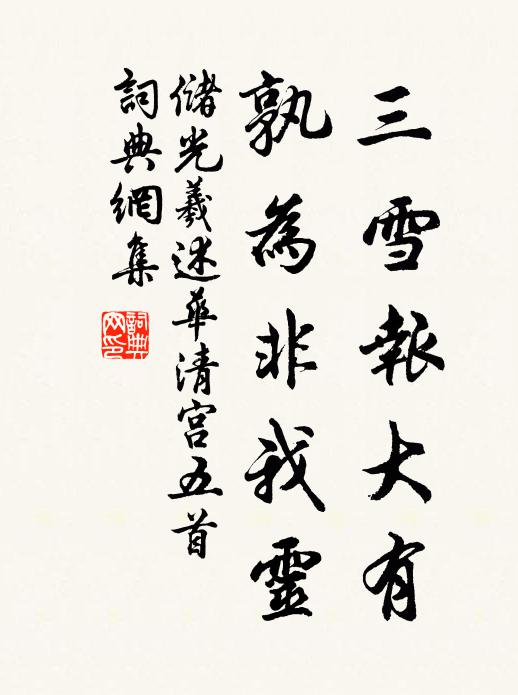 三雪報大有
孰為非我靈
儲光羲述華清宮五首
詞典網集
詞典網印